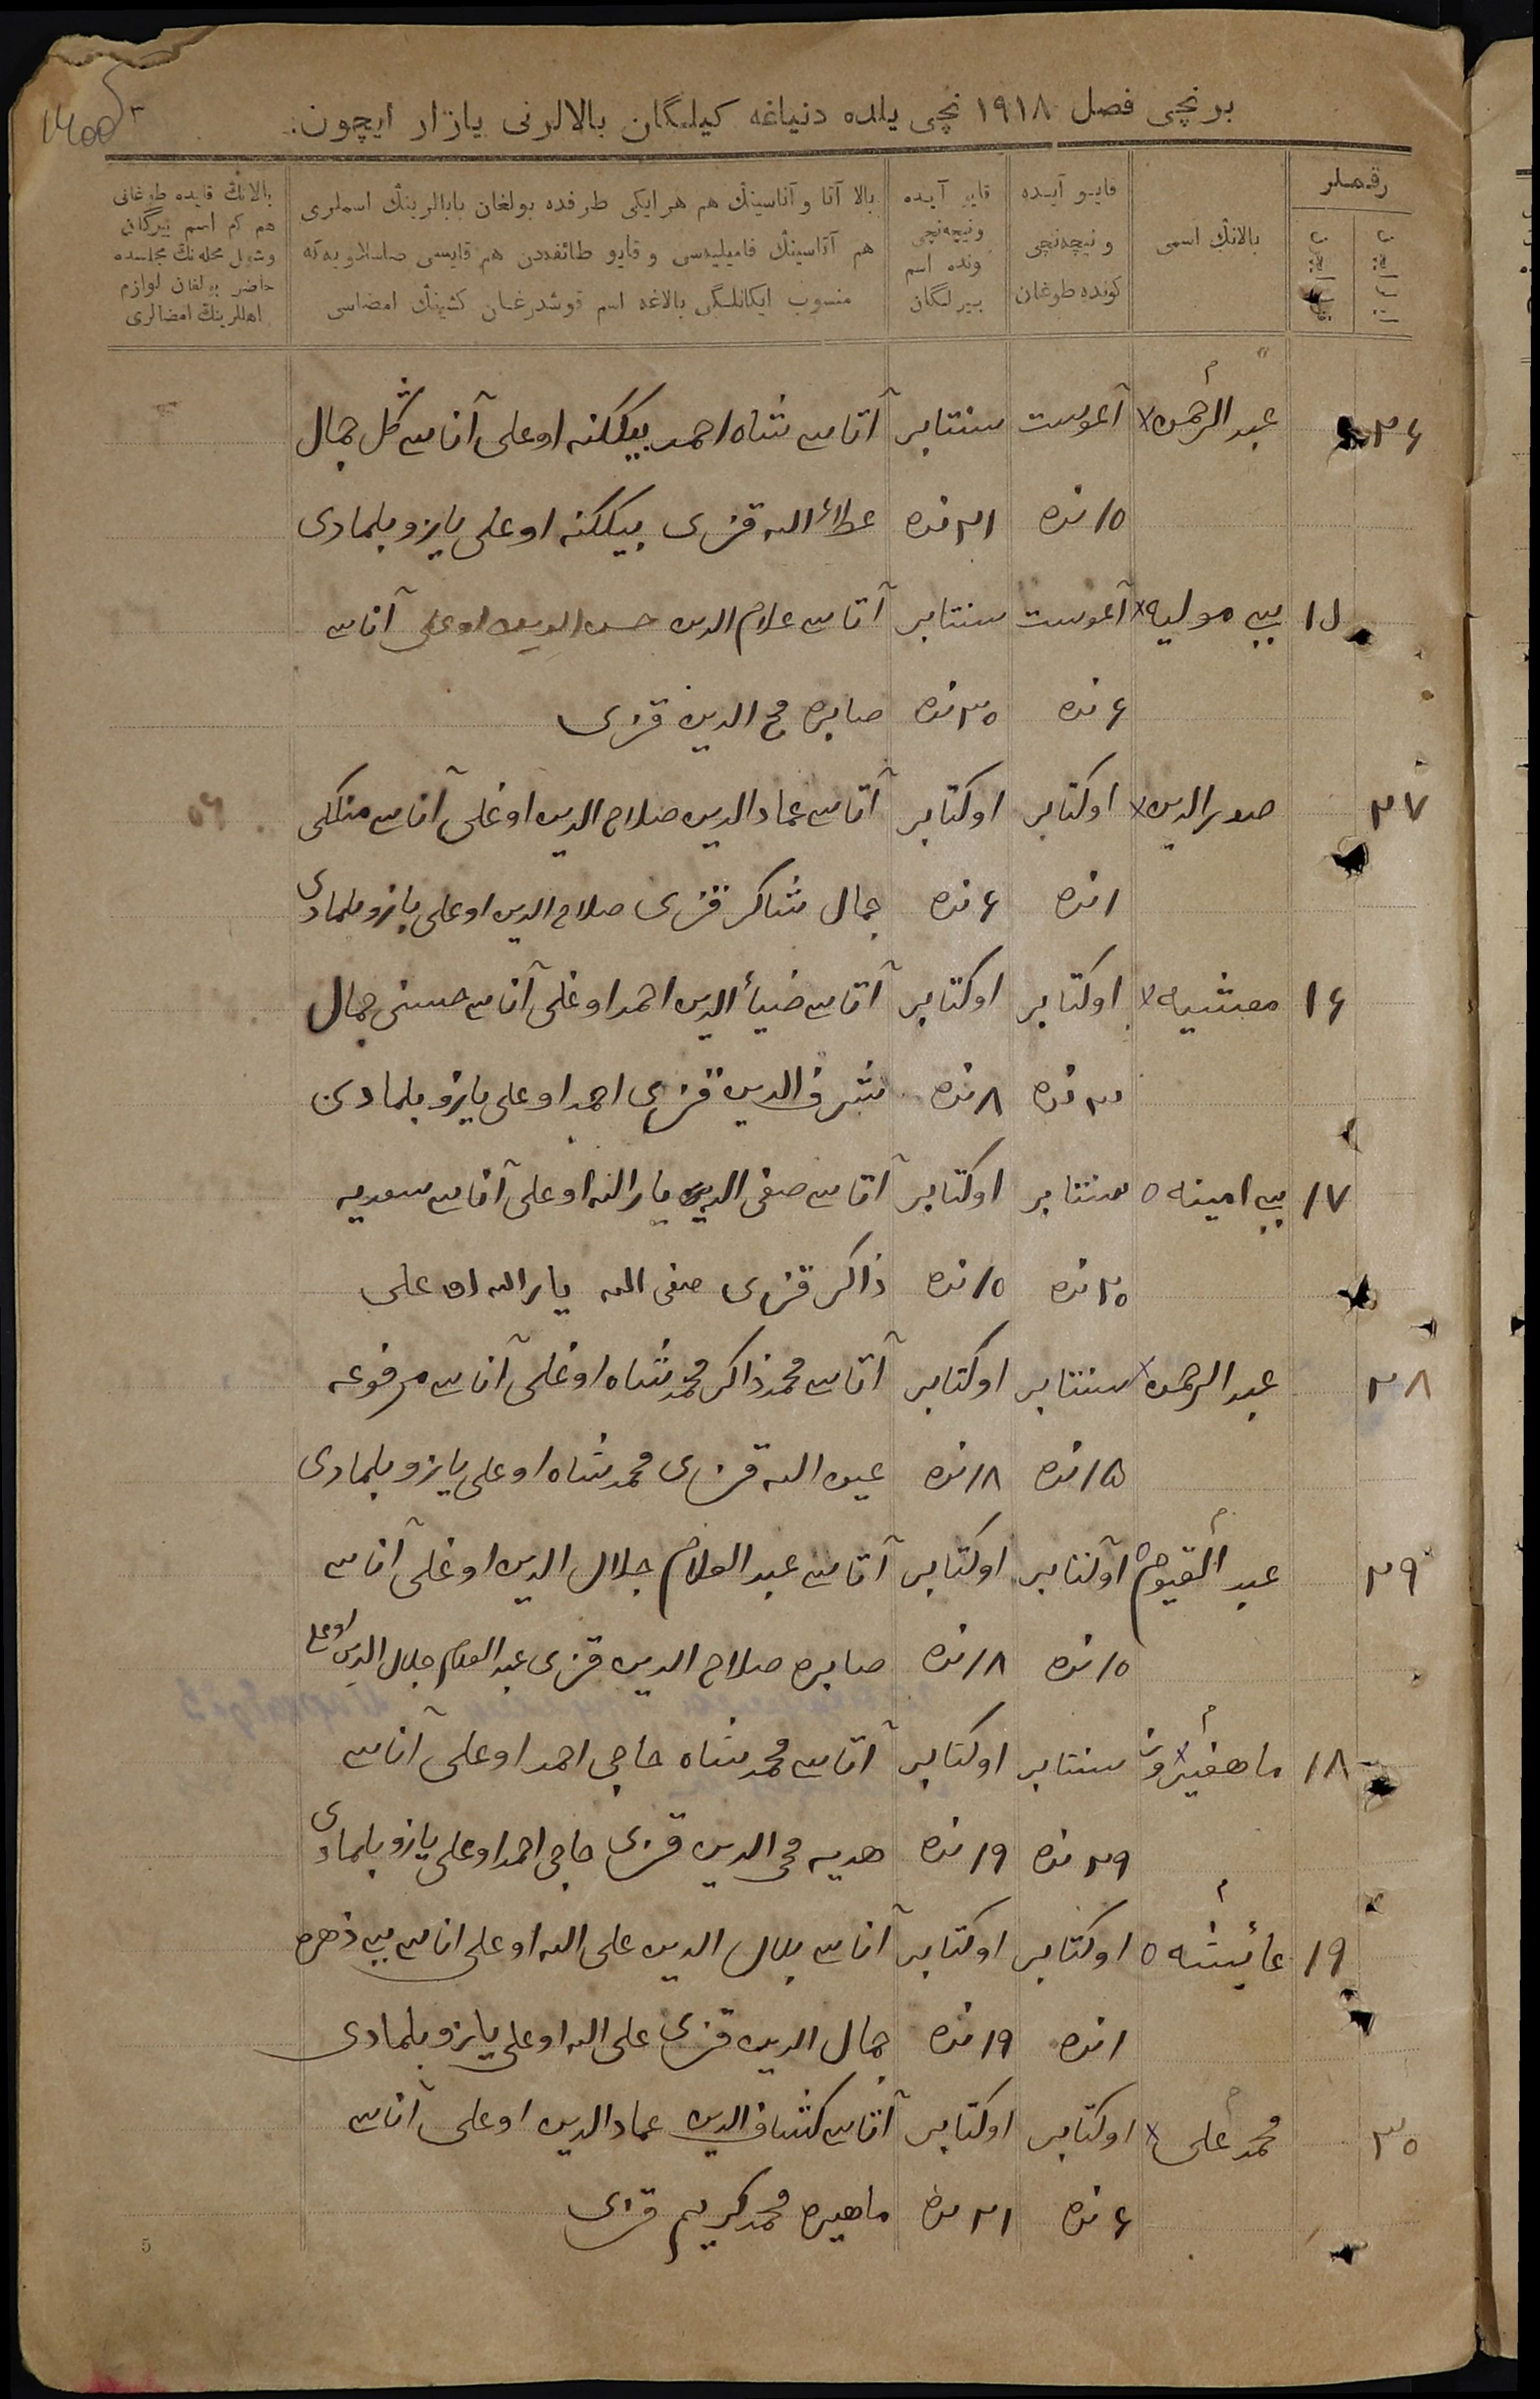 برنچی فصل ١٩١٨ نچی یلده دنیاغه کیلگان بالالرنی یازار ایچون:
رقملر
بالانڭ اسمی
قایو آیده
و نیچه‌نچی
کونده طوغان
قایو آیده
ونیچه‌نچی
ونده اسم
بیرلگان
بالا آتا و آناسینڭ هم هر ایکی طرفده بولغان بابالرینڭ اسملری
هم آتاسینڭ فامیلیه‌سی و قایو طائفه‌دن هم قایسی
منسوب ایکانلگی بالاغه اسم قوشدرغان کشینڭ امضاسی
بالانڭ قایده طوغانی
هم کم اسم بیرگان
وشول محله‌نڭ مجلسده
حاضر بولغان لوازم
اهللرینڭ امضالری
٢٦ عبد الرحمن x آغوست سنتابر آتاسی شاه احمد بیککنه اوغلی آناسی گل جمال
١٥ نده ٢١ نده عطاء الله قزی بیککنه اوغلی یازو بلمادی
١٥ بی بی مولیه x آغوست سنتابر آتاسی علام الدین حسن الدین اوغلی آناسی
٦ نده ٢٥ نده صابره محی الدین قزی
٢٧ صدر الدین x اوکتابر اوکتابر آتاسی عماد الدین صلاح الدین اوغلی آناسی منلکی
١ نده ٦ نده جمال شاکر قزی صلاح الدین اوغلی یازو بلمادی
١٦ x اوکتابر اوکتابر آتاسی ضیاء الدین احمد اوغلی آناسی حسنی جمال
نده ٨ نده شرف الدین قزی احمد اوغلی یازو بلمادی
١٧ بی بی امینه ٥ سنتابر اوکتابر آتاسی صفی الدین یار الله اوغلی آناسی سعدیه
٢٥ نده ١٥ نده ذاکر قزی صفی الله یار الله اوغلی
٢٨ عبد الرحمن x سنتابر اوکتابر آتاسی محمد ذاکر محمد شاه اوغلی آناسی مرفوعه
١٥ نده ١٨ نده عین الله قزی محمد شاه اوغلی یازو بلمادی
٢٩ عبد القیوم اوکتابر اوکتابر آتاسی عبد العلام جلال الدین اوغلی آناسی
١٥ نده ١٨ نده صابره صلاح الدین قزی عبد العلام جلال الدین اوغلی
١٨ ماهفیروز x سنتابر اوکتابر آتاسی محمد شاه حاجی احمد اوغلی آناسی
٢٩ نده ١٩ نده هدیه محی الدین قزی حاجی احمد اوغلی یازو بلمادی
١٩ عائیشه ٥ اوکتابر اوکتابر آتاسی بلال الدین علی الله اوغلی اناسی بی بی زهره
١ نده ١٩ نده جمال الدین قزی علی الله اوغلی یازو بلمادی
٣٠ محمد علی x اوکتابر اوکتابر آتاسی کشاف الدین عماد الدین اوغلی آناسی
٦ نده ٢١ نده ماهیره محمد کریم قزی
5